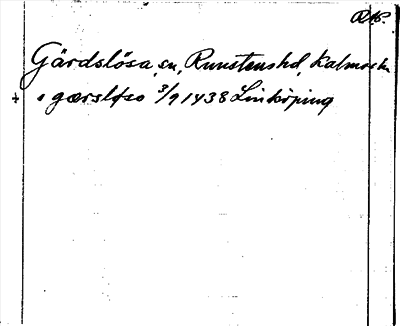 RAP.
Gärdslösa sn, Runstens hd, Kalmar ln
+ i gærsløso 3/9 1438 Linköping